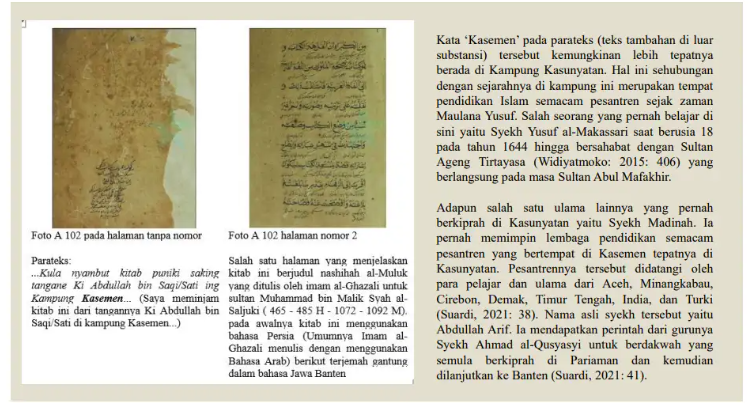 Foto A 102 pada halaman tanpa nomor
Parateks:
...Kula nyambut kitab puniki saking
tangane Ki Abdullah bin Saqi/Sati ing
Kampung Kasemen... (Saya meminjam
kitab ini dari tangannya Ki Abdullah bin
Saqi/Sati di kampung Kasemen...)
Foto A 102 halaman nomor 2
Salah satu halaman yang menjelaskan
kitab ini berjudul nashihah al-Muluk
yang ditulis oleh imam al-Ghazali untuk
sultan Muhammad bin Malik Syah al-
Saljuki ( 465 - 485 H - 1072 - 1092 M).
pada awalnya kitab ini menggunakan
bahasa Persia (Umumnya Imam al-
Ghazali menulis dengan menggunakan
Bahasa Arab) berikut terjemah gantung
dalam bahasa Jawa Banten
Kata ‘Kasemen’ pada parateks (teks tambahan di luar
substansi) tersebut kemungkinan lebih tepatnya
berada di Kampung Kasunyatan. Hal ini sehubungan
dengan sejarahnya di kampung ini merupakan tempat
pendidikan Islam semacam pesantren sejak zaman
Maulana Yusuf. Salah seorang yang pernah belajar di
sini yaitu Syekh Yusuf al-Makassari saat berusia 18
pada tahun 1644 hingga bersahabat dengan Sultan
Ageng Tirtayasa (Widiyatmoko: 2015: 406) yang
berlangsung pada masa Sultan Abul Mafakhir.
Adapun salah satu ulama lainnya yang pernah
berkiprah di Kasunyatan yaitu Syekh Madinah. Ia
pernah memimpin lembaga pendidikan semacam
pesantren yang bertempat di Kasemen tepatnya di
Kasunyatan. Pesantrennya tersebut didatangi oleh
para pelajar dan ulama dari Aceh, Minangkabau,
Cirebon, Demak, Timur Tengah, India, dan Turki
(Suardi, 2021: 38). Nama asli syekh tersebut yaitu
Abdullah Arif. Ia mendapatkan perintah dari gurunya
Syekh Ahmad al-Qusyasyi untuk berdakwah yang
semula berkiprah di Pariaman dan kemudian
dilanjutkan ke Banten (Suardi, 2021: 41).